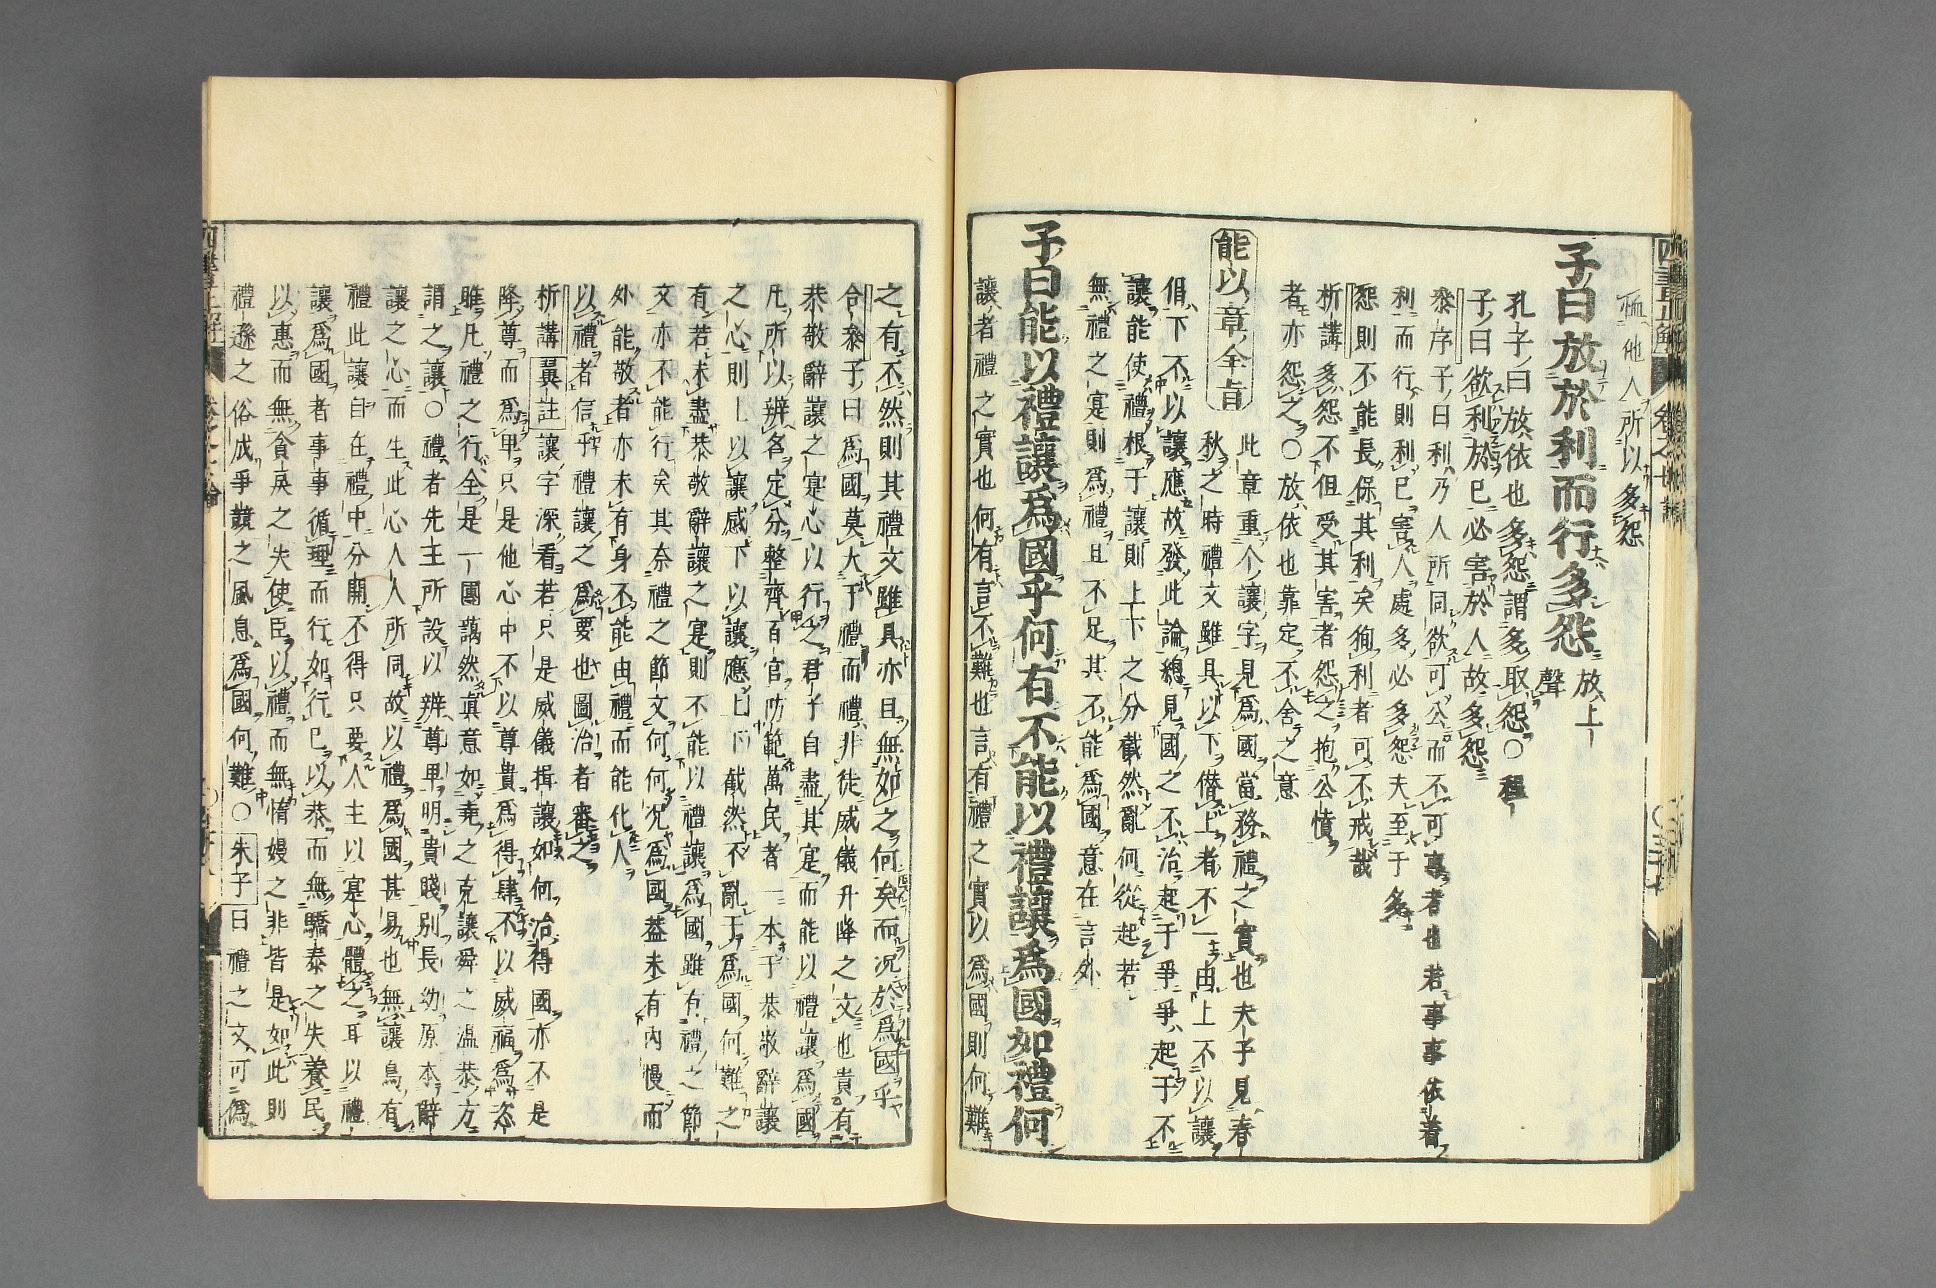 極他人所以多怨
子曰放於利而行多怨 放上聲
孔子曰放依也多怨謂多取怨〇程
子曰欲利於己必害於人故多怨
叅序子曰利乃人所同欲可公而不可專者也若事事依着
利而行則利己害人處多必多怨夫至于多
怨則不能長保其利矣狥利者可不戒哉
析講多怨不但受其害者怨之抱公憤
者亦怨之〇放依也靠定不舍之意
能以章全旨
此章重个讓字見為國當務禮之實也夫子見春
秋之時禮文雖具以下僭上者不一由上不以讓
倡下不以讓應故發此論總見國之不治起于爭爭起于不
讓能使禮根于讓則上下之分截然亂何從起若
無禮之寔則為禮且不足其不能為國意在言外
子曰能以禮讓為國乎何有不能以禮讓為國如禮何
讓者禮之實也何有言不難也言有禮之實以為國則何難
之有不然則其禮文雖具亦且無如之何矣而況於為國乎
合叅子曰為國莫大于禮而禮非徒威儀升降之文也貴有
恭敬辭讓之寔心以行之君子自盡其寔而能以禮讓為國
凡所以辨名定分整齊百官防範萬民者一本于恭敬辭讓
之心則上以讓感下以讓應上下截然不亂于為國何難之
有若未盡恭敬辭讓之寔則不能以禮讓為國雖有禮之節
文亦不能行矣其奈禮之節文何何況為國葢未有內慢而
外能敬者亦未有身不能由禮而能化人
以禮者信乎禮讓之為要也圖治者審之
析講翼註讓字深看若只是威儀揖讓如何治得國亦不是
降尊而為卑只是他心中不以尊貴為得肆不以威福為恣
雖凡禮之行全是一團藹然真意如堯之克讓舜之溫恭方
謂之讓〇禮者先王所設以辨尊卑明貴賤別長幼原本辭
讓之心而生此心人人所同故以禮為國甚易也無讓烏有
禮此讓自在禮中分開不得只要人主以寔心體之耳以禮
讓為國者事事循理而行如行己以恭而無驕泰之失養民
以惠而無貪戾之失使臣以禮而無惰嫚之非皆是如此則
禮遜之俗成爭競之風息為國何難〇朱子曰禮之文可偽